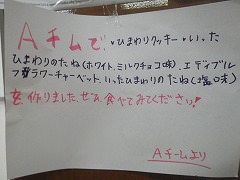 Aチームで、・ひまわりクッキー・いった
ひまわりのたね(ホワイト、ミルクチョコ味)、エディブルフ
ラワーチャーベット、いったひまわりのたね(塩味)
を、作りました。ぜひ、食べてみてください!
Aチームより